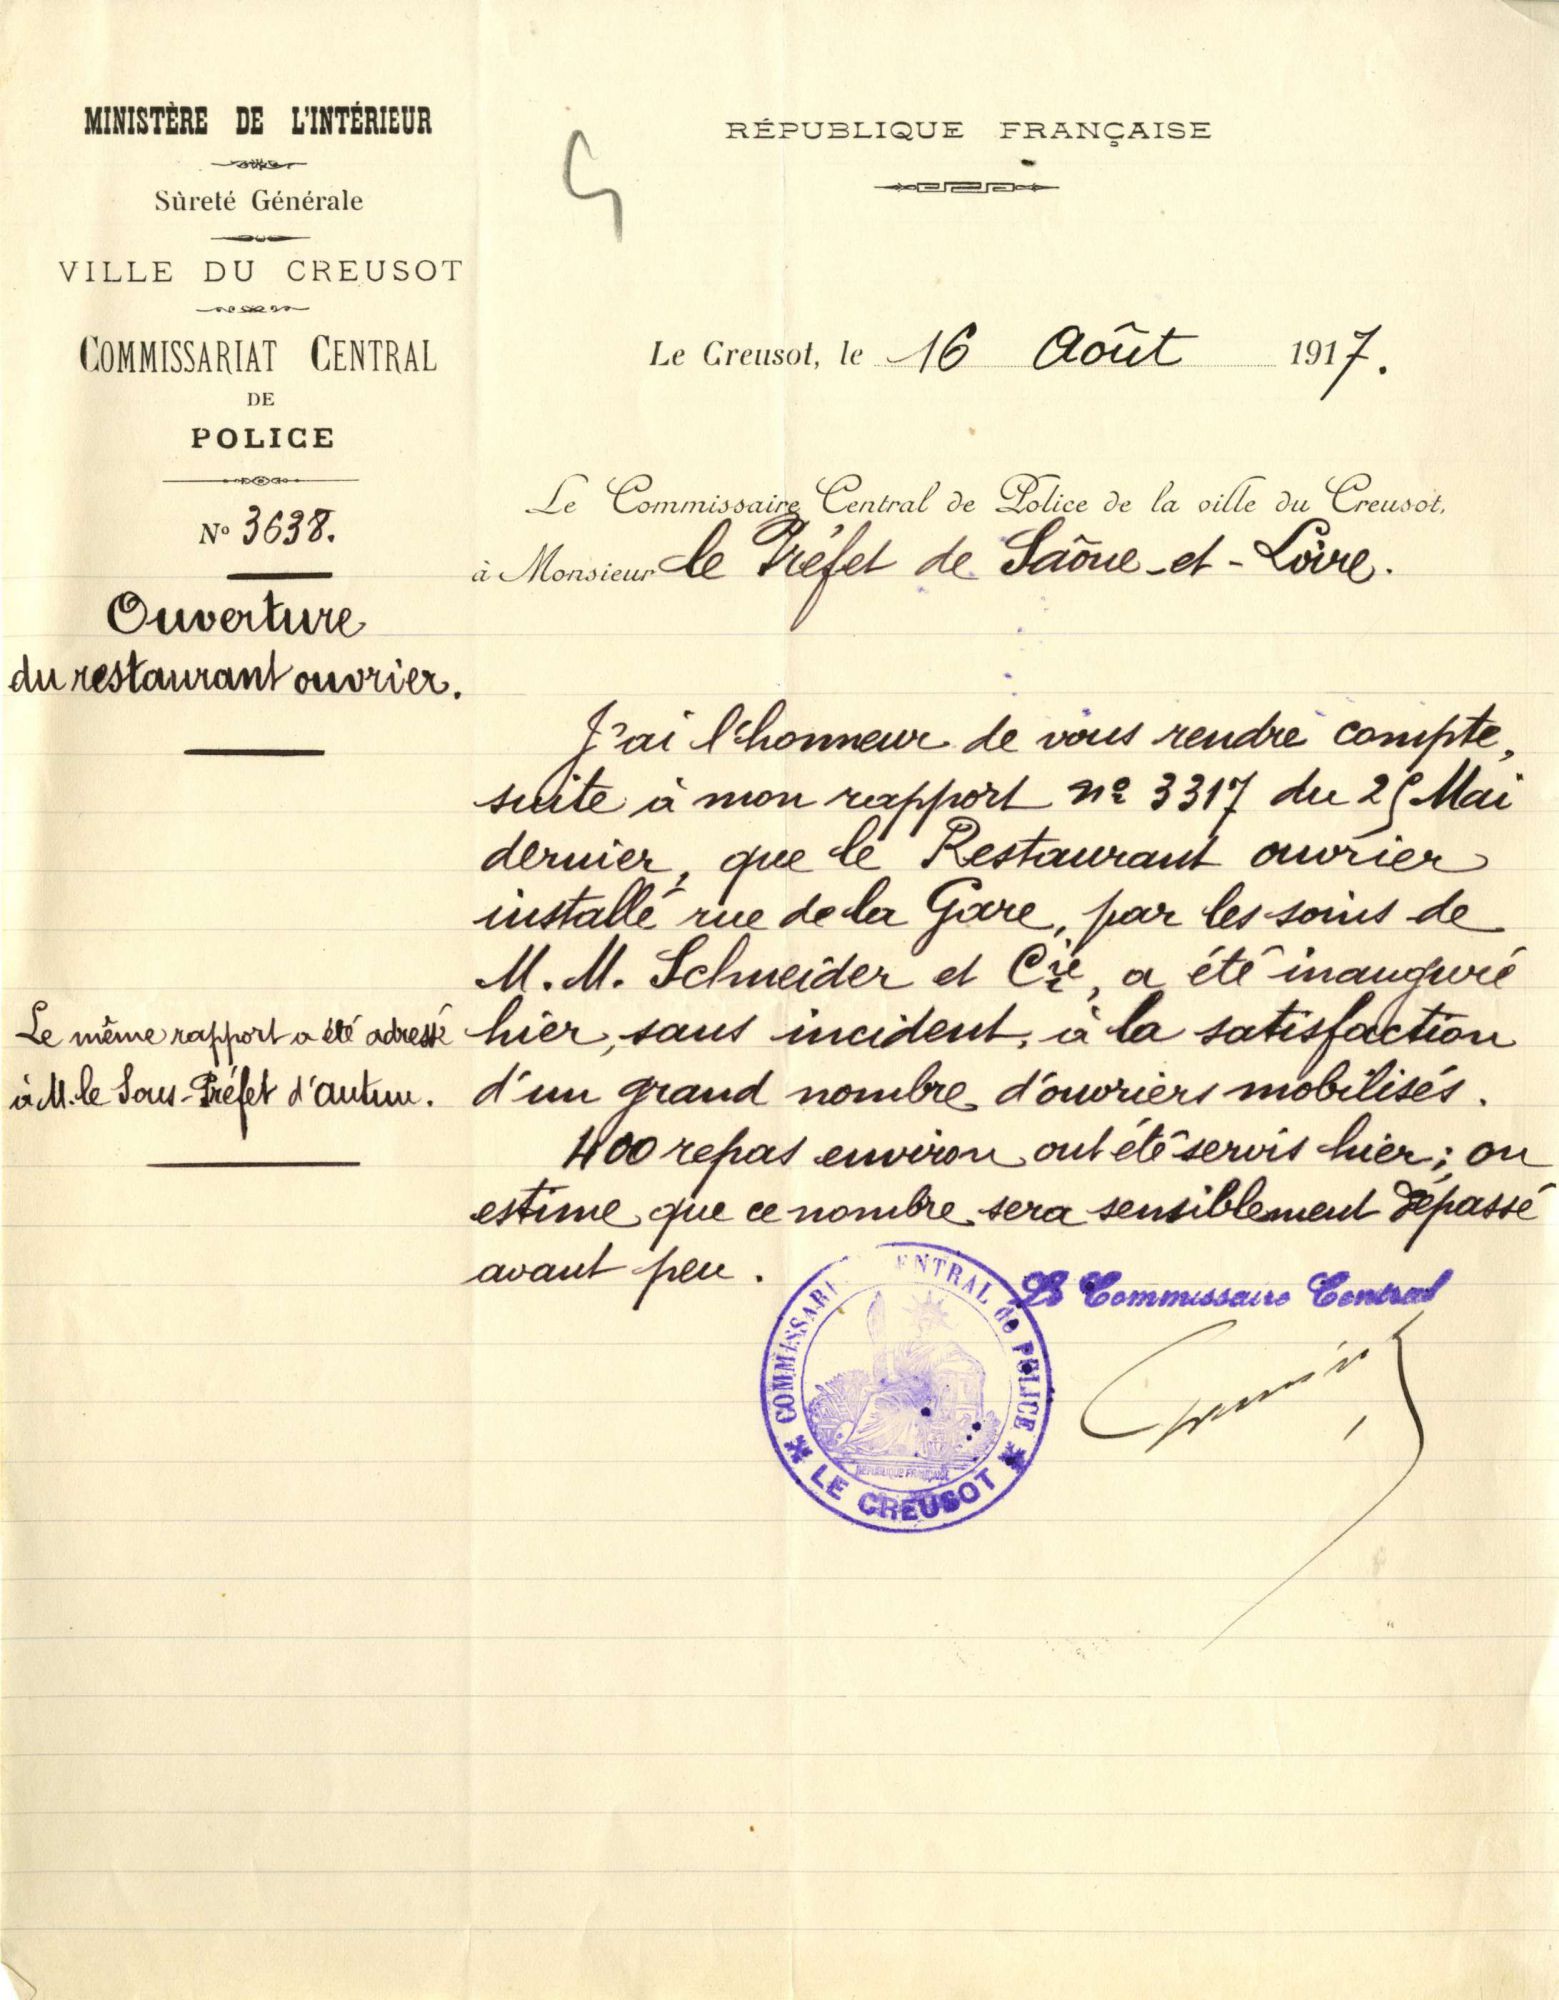 MINISTÈRE DE L'INTÉRIEUR
Sûreté Générale
VILLE DU CREUSOT
COMMISSARIAT CENTRAL
DE
POLICE
Nº 3638.
Ouverture
du restaurant ouvrier.
Le même rapport a été adressé
à M. le Sous-Préfet d'Autun.
RÉPUBLIQUE FRANÇAISE
Le Creusot, le 16 Août 1917.
Le Commissaire Central de Police de la ville du Creusot,
à Monsieur le Préfet de Saône-et-Loire.
J'ai l'honneur de vous rendre compte,
suite à mon rapport nº 3317 du 25 Mai
dernier, que le Restaurant ouvrier
installé rue de la Gare, par les soins de
M.M. Schneider et Cie, a été inauguré
hier, sans incident, à la satisfaction
d'un grand nombre d'ouvriers mobilisés.
400 repas environ ont été servis hier; on
estime que ce nombre sera sensiblement dépassé
avant peu.
Le Commissaire Central
COMMISSARI ENTRAL de POLICE
RÉPUBLIQUE FRANÇAISE
LE CREUSOT